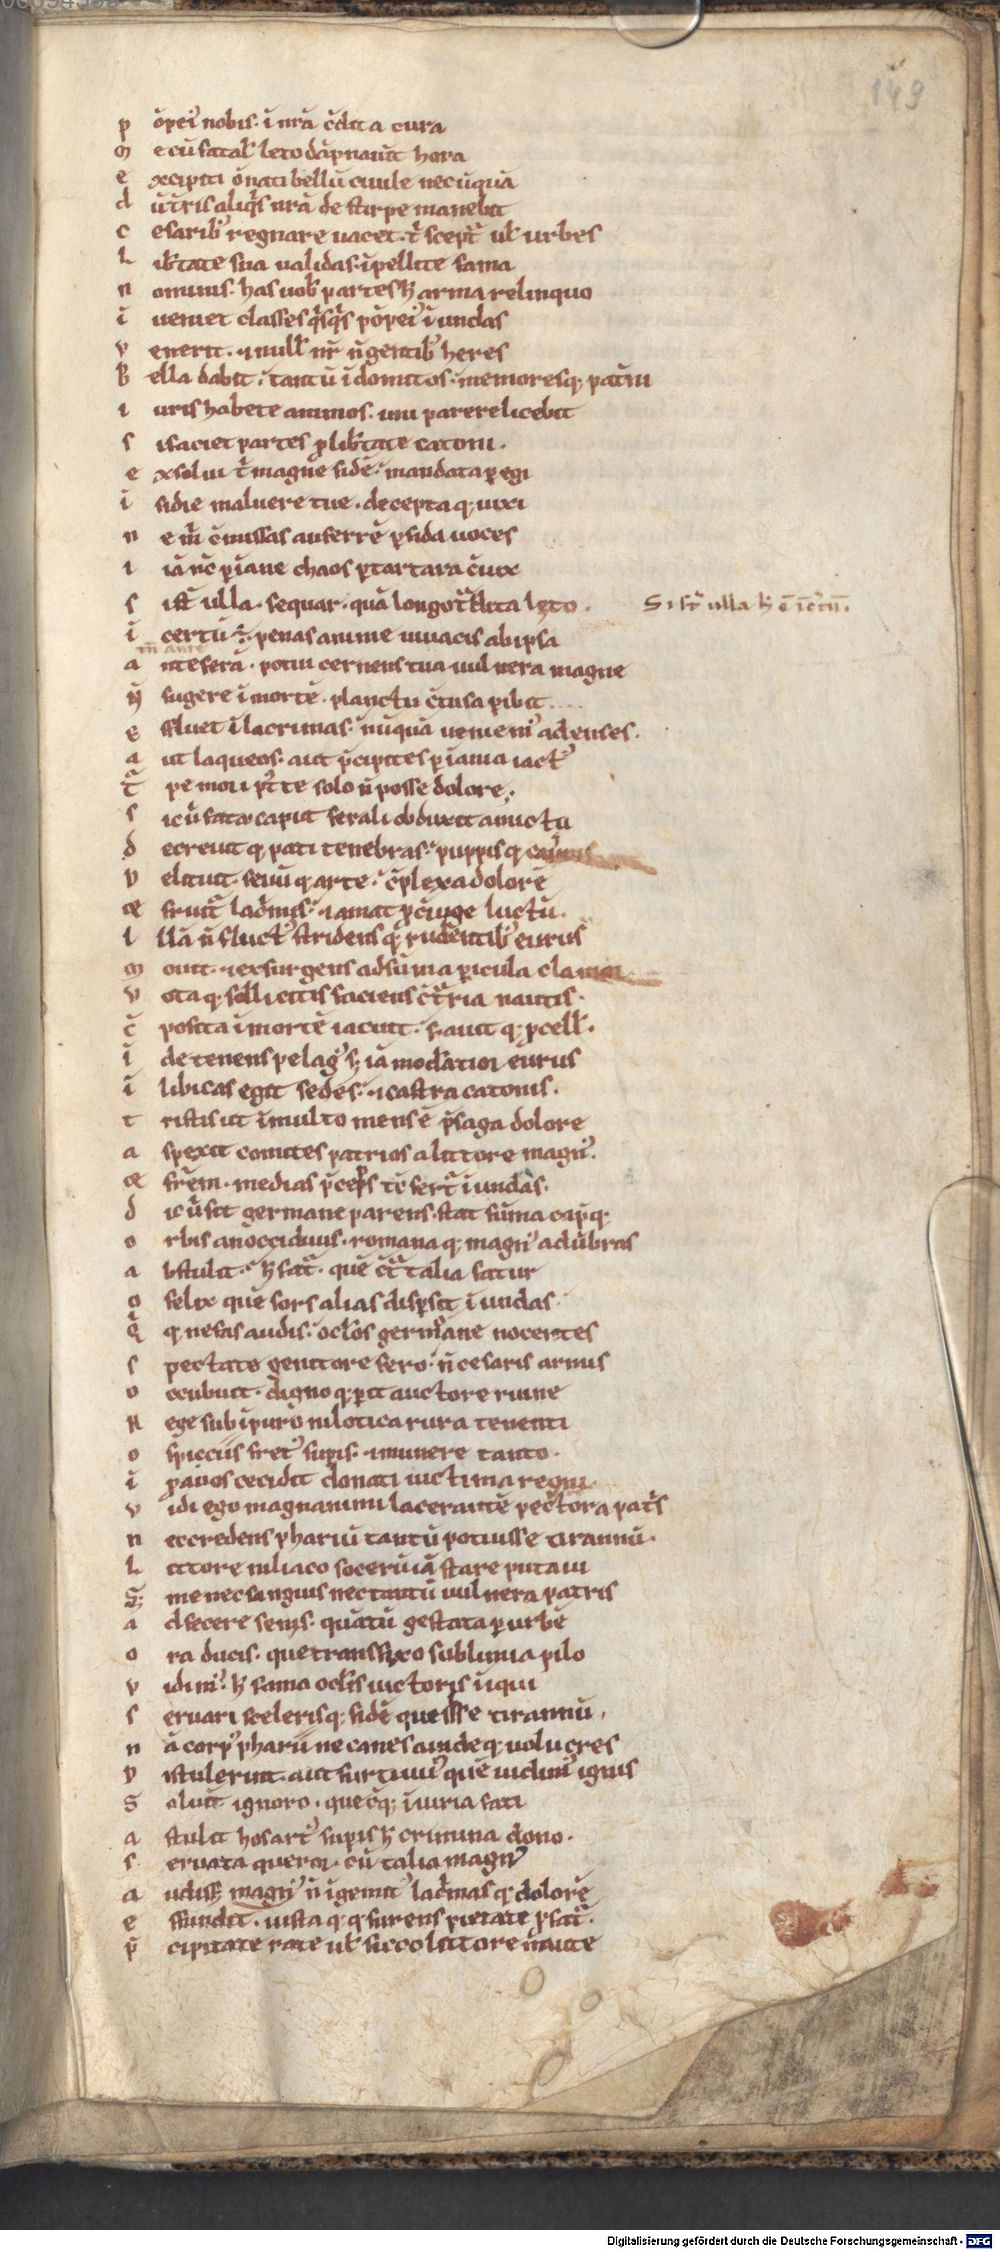 149
p ōpei᷒ nobis· ī nrā c̄dita cura
m e cū fatal' leto dāpnauit hora
e xcipiti ō nati bellū ciuile nec ūquā
d ū t̄ris aliq̄s nrā de stirpe manebit
c esarib᷒ regnare uacet· t̄ scept̄ ul' urbes
L ib̄tate sua ualidas· īpellite fama
n ominis· has uob̄ partes ⁊ arma relinquo
i ueniet classes q̄sq̄s pōpei᷒ ī undas
v enerit· ⁊ null᷒ m̄ n̄ gentib᷒ heres
b ella dabit· tantū īdomitos· memoresq; pat̄ni
i uris habete animos· uni parere licebit
s i faciet partes ꝓ lib̄tate catoni·
e xsolui t̄ magne fidē· mandata ꝑegi
i sidie ualuere tue· deceptaq; uixi
n e m̄ c̄missas auferrē ꝑfida uoces
i iā nc̄ ꝑ iane chaos ꝑ tartara c̄iux
s i st̄ ulla· sequar· quā longo t̄dita leto· Si st̄ ulla ⁊ ē īc̄tū·
i certū ē· penas anime uiuacis ab ipsa
a nte ferā· potui cernens tua uulnera magne
n̄ fugere ī mortē· planctu c̄tusa ꝑibit
e ffluet ī lacrimas· nūquā ueniem᷒ ad enses·
a ut laqueos· aut p̄cipites ꝑ iania iact᷒
t̄ pe mori p᷒t te solo n̄ posse dolore·
s ic ū fata· caput ferali obduxit amictu
d ecreuitq; pati tenebras· puppisq;
v elituit· seuūq; arte· c̄plexa dolorē
ꝑ fruit̄ lac̄mis· ⁊ amat ꝓ c̄iuge luctū·
i llā n̄ fluct᷒ stridensq; rudentib᷒ eurus
m ouit· ⁊ exsurgens ad sūma ꝑicula clamor
v otaq; sollicitis faciens c̄t̄ria nautis·
c̄ posita ī mortē iacuit· fauitq; ꝓcell'·
i de tenens pelag᷒ s; iā mod̄atior eurus
i libicas egit sedes· ⁊ castra catonis·
t ristis ut ī multo mens ē p̄saga dolore
a spexit comites patrios a littore magn᷒·
ꝑ frēm· medias p̄ceps tc̄ fert̄ ī undas·
d ic ū fit germane parens· stat sūma capq;
o rbis an occidim᷒· romanaq; magn᷒ ad ūbras
a bstulit· ⁊ fat̄· quē c̄t̄ talia fatur
o felix quē sors alias disꝑsit ī undas·
q̄ q; nefas audis· ocl̄os germane nocentes
s pectato genitore fero· n̄ cesaris armis
o ccubuit· dignoq; ꝑit auctore ruine
R ege sub īpuro nilotica rura tenenti
o spiciis fret᷒ suꝑis· ⁊ munere tanto·
i ꝓauos cecidit donati uictima regni
v idi ego magnanimi lacerantē pectora pat̄s
n ec credens phariū tantū potuisse tirannū·
L ittore niliaco socerū iā stare putaui
s; me nec sanguis nec tantū uulnera patris
a dfecere senis· quātū gestata ꝑ urbē
o ra ducis· que transfixo sublimia pilo
v idim᷒· ⁊ fama ocl̄is uictoris īiqui
s eruari scelerisq; fidē quesisse tirannū·
n ā corp᷒ pharii ne canes auideq; uolucres
d istulerint· aut furtiuu᷒ quē uidim᷒ ignis
S oluit ignoro· quec̄q; īiuria fati
a bstulit hos art᷒ suꝑis ⁊ crimina dono·
s eruata queror· cū talia magn᷒
a udiss; magn᷒ n̄ ī gemit᷒ lac̄masq; dolorē
e ffundit· iustaq; q; furens pietate ꝓfat̄·
p̄ cipitate rate ul' sicco littore naute
Digitalisierung gefördert durch die Deutsche Forschungsgemeinschaft - DFG